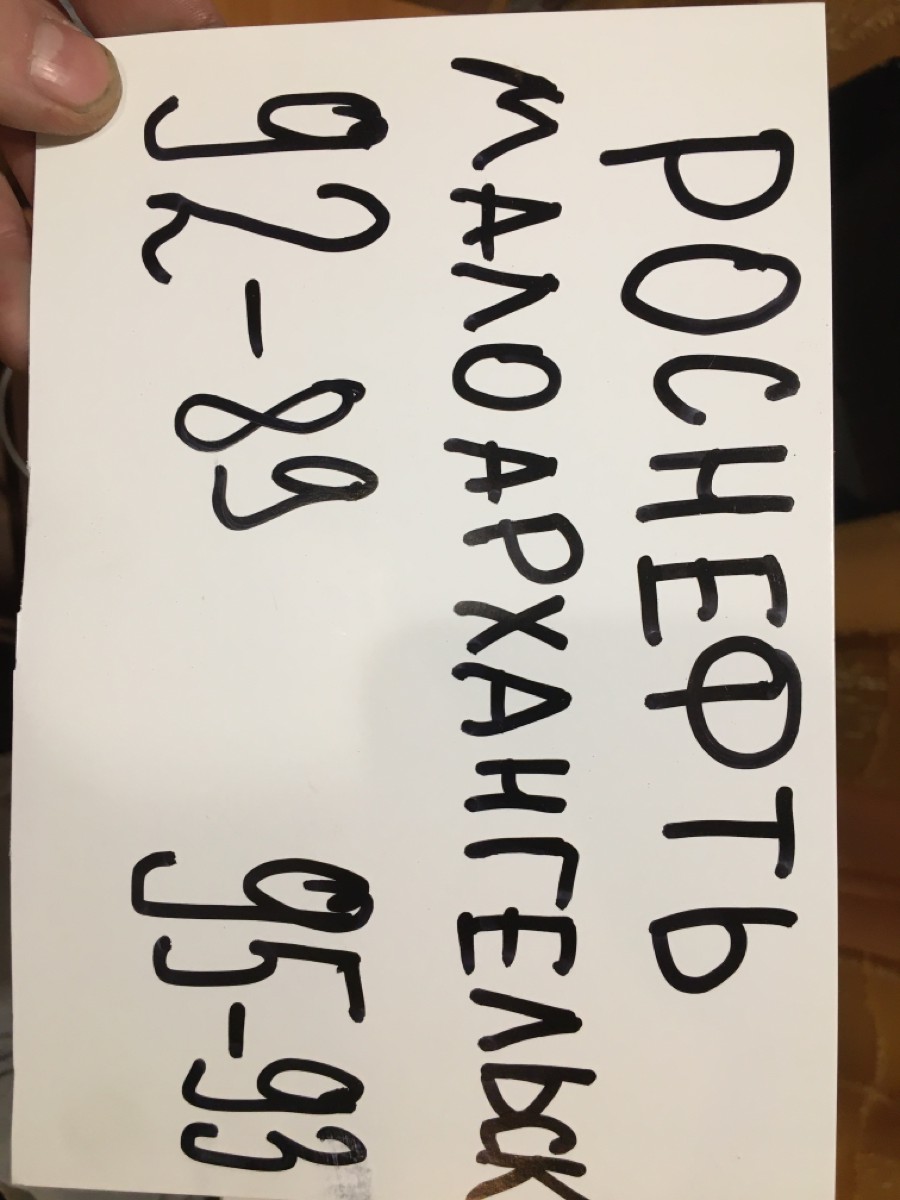 РОСНЕФТЬ
МАЛОАРХАНГЕЛЬСК
92-89 95-93